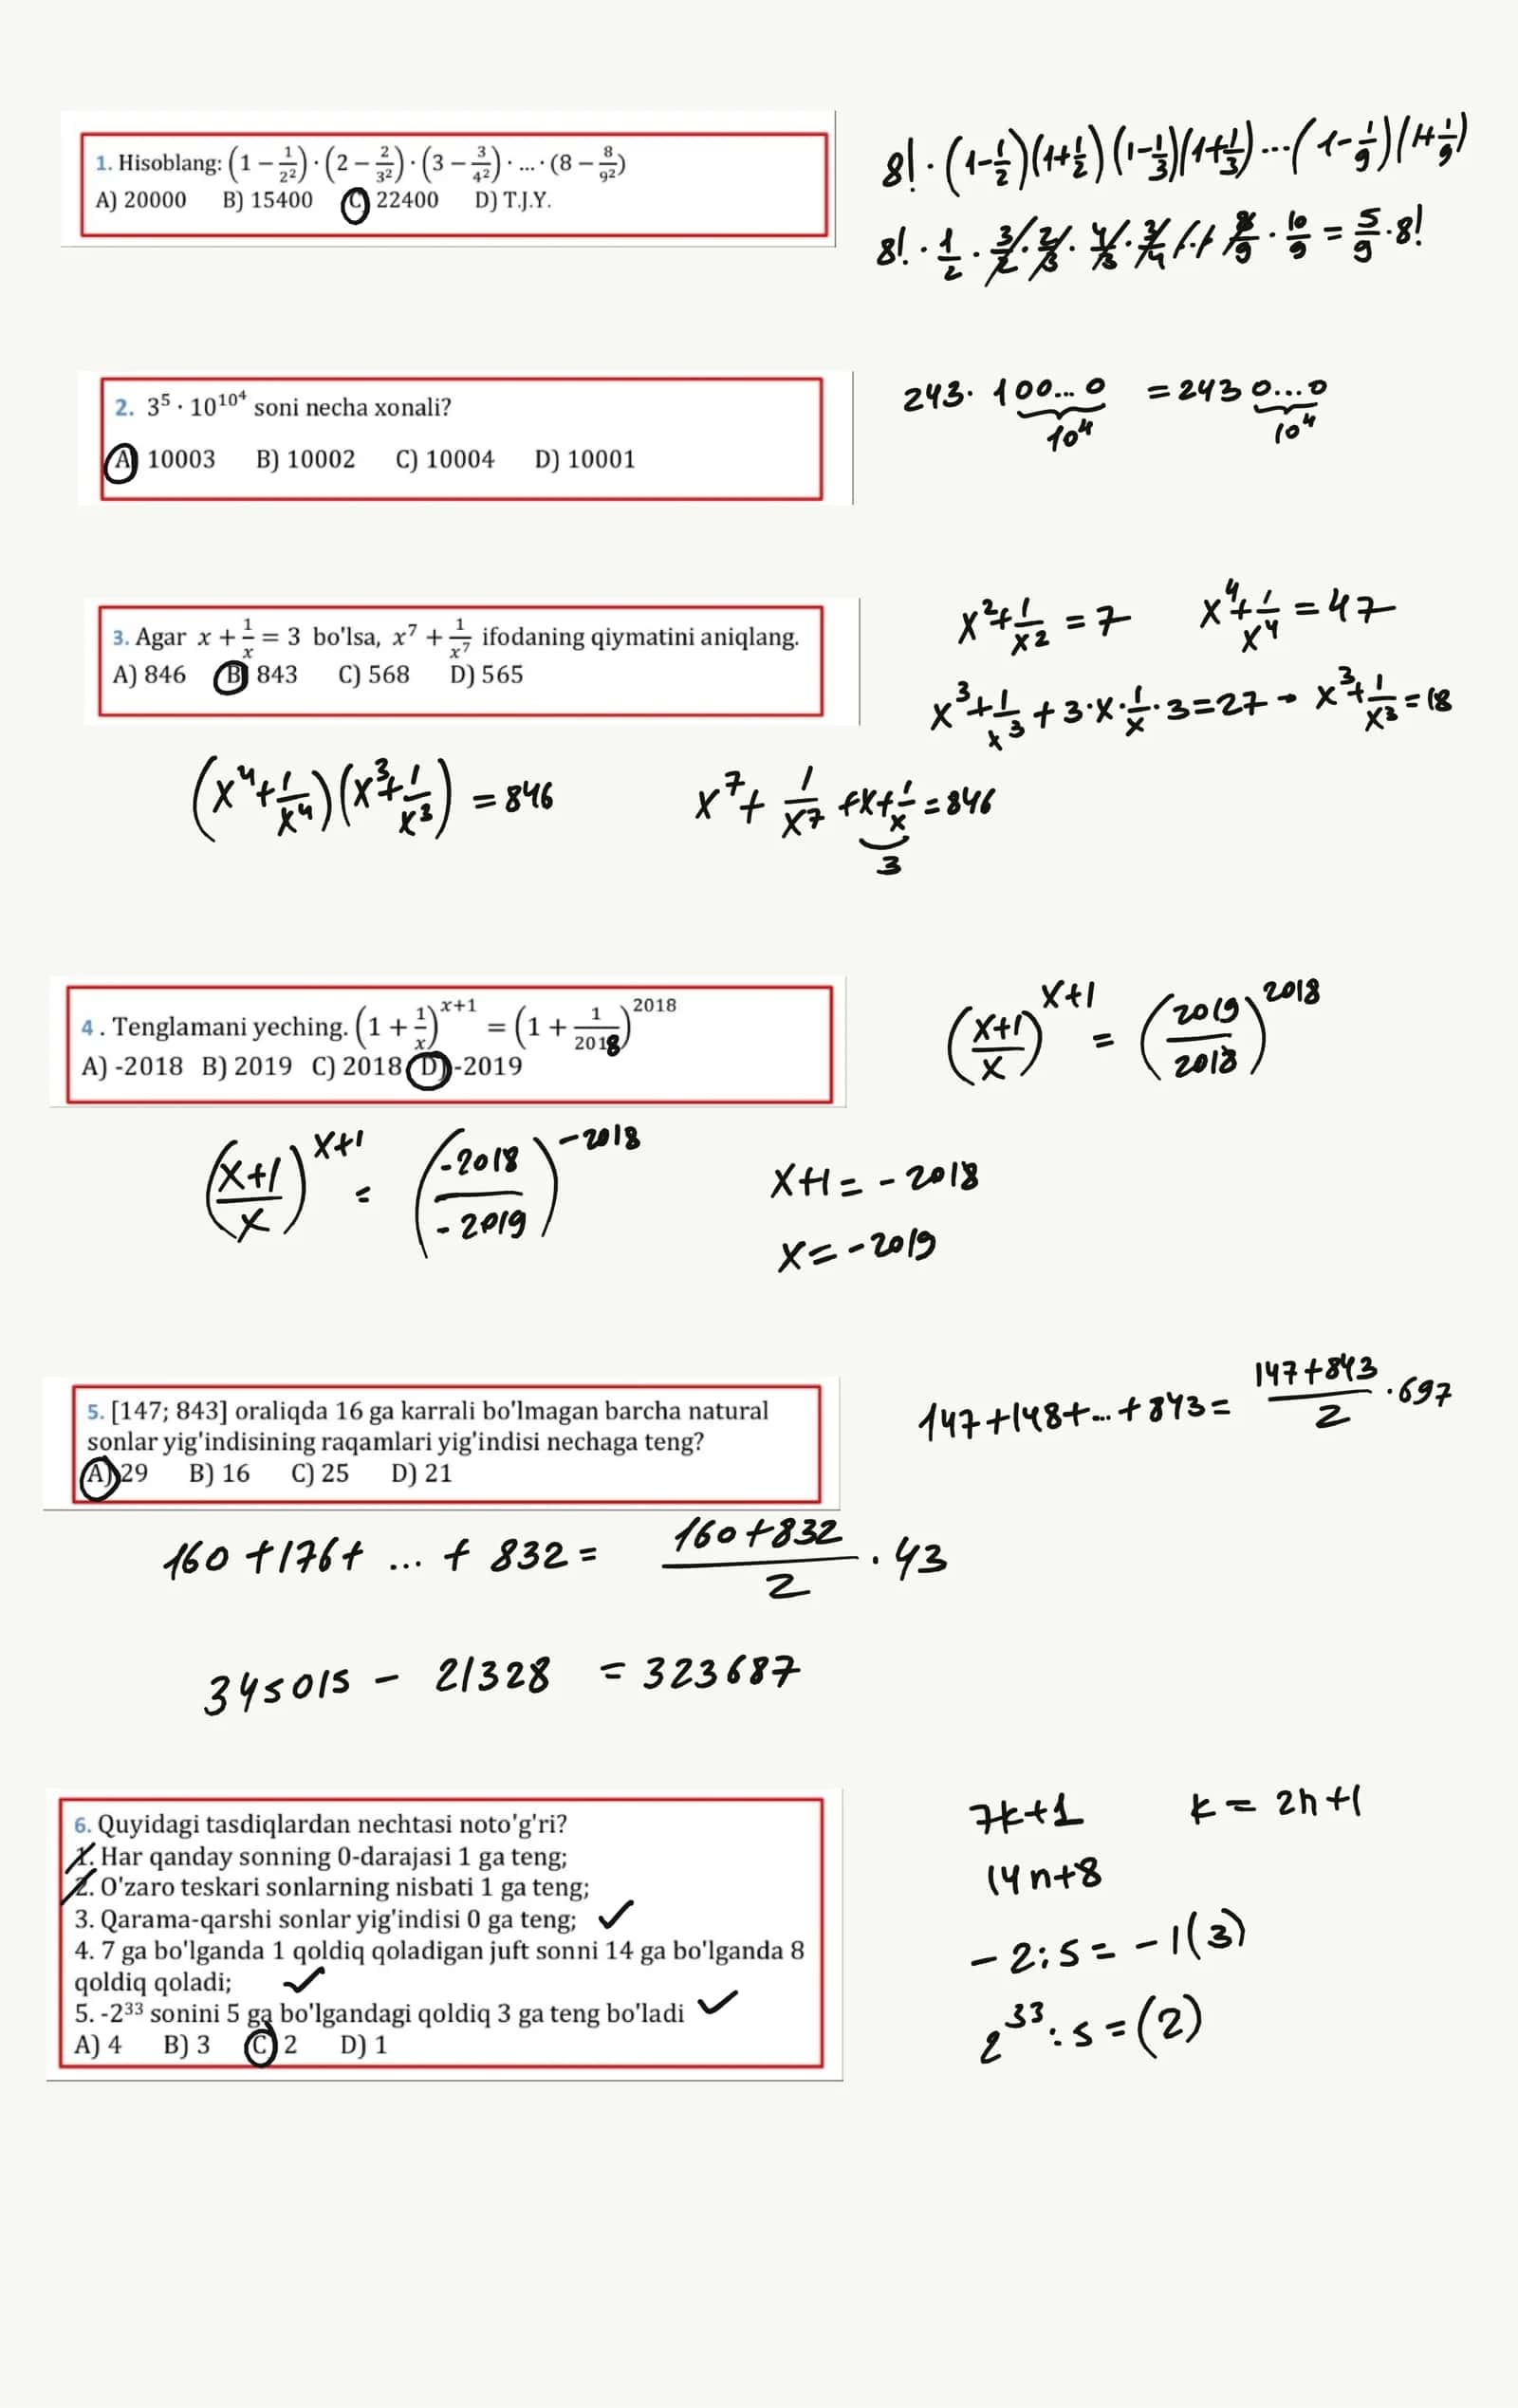 1. Hisoblang: (1 − 1/2²) · (2 − 2/3²) · (3 − 3/4²) · ... · (8 − 8/9²)
A) 20000 B) 15400 C) 22400 D) T.J.Y.
8! · (1-1/2)(1+1/2)(1-1/3)(1+1/3)...(1-1/9)(1+1/9)
8! · 1/2 · 3/2 · 2/3 · 4/3 · 3/4 ... 8/9 · 10/9 = 5/9 · 8!
2. 3⁵ · 10^10⁴ soni necha xonali?
A) 10003 B) 10002 C) 10004 D) 10001
243 · 100...0 = 243 0...0
10⁴ 10⁴
3. Agar x + 1/x = 3 bo'lsa, x⁷ + 1/x⁷ ifodaning qiymatini aniqlang.
A) 846 B) 843 C) 568 D) 565
x² + 1/x² = 7 x⁴ + 1/x⁴ = 47
x³ + 1/x³ + 3 · x · 1/x · 3 = 27 - x³ + 1/x³ = 18
(x⁴ + 1/x⁴)(x³ + 1/x³) = 846 x⁷ + 1/x⁷ + x + 1/x = 846
3
4 . Tenglamani yeching. (1 + 1/x)^x+1 = (1 + 1/2018)^2018
A) -2018 B) 2019 C) 2018 D) -2019
((x+1)/x)^x+1 = (2019/2018)^2018
((x+1)/x)^x+1 = (-2018/-2019)^-2018
x+1 = - 2018
x = -2019
5. [147; 843] oraliqda 16 ga karrali bo'lmagan barcha natural
sonlar yig'indisining raqamlari yig'indisi nechaga teng?
A) 29 B) 16 C) 25 D) 21
147+148+...+843 = (147+843)/2 · 697
160 + 176 + ... + 832 = (160+832)/2 · 43
345015 - 21328 = 323687
6. Quyidagi tasdiqlardan nechtasi noto'g'ri?
1. Har qanday sonning 0-darajasi 1 ga teng;
2. O'zaro teskari sonlarning nisbati 1 ga teng;
3. Qarama-qarshi sonlar yig'indisi 0 ga teng; ✓
4. 7 ga bo'lganda 1 qoldiq qoladigan juft sonni 14 ga bo'lganda 8
qoldiq qoladi; ✓
5. -2³³ sonini 5 ga bo'lgandagi qoldiq 3 ga teng bo'ladi ✓
A) 4 B) 3 C) 2 D) 1
7k+1 k = 2n+1
14n+8
- 2:5 = -1(3)
2³³:5 = (2)